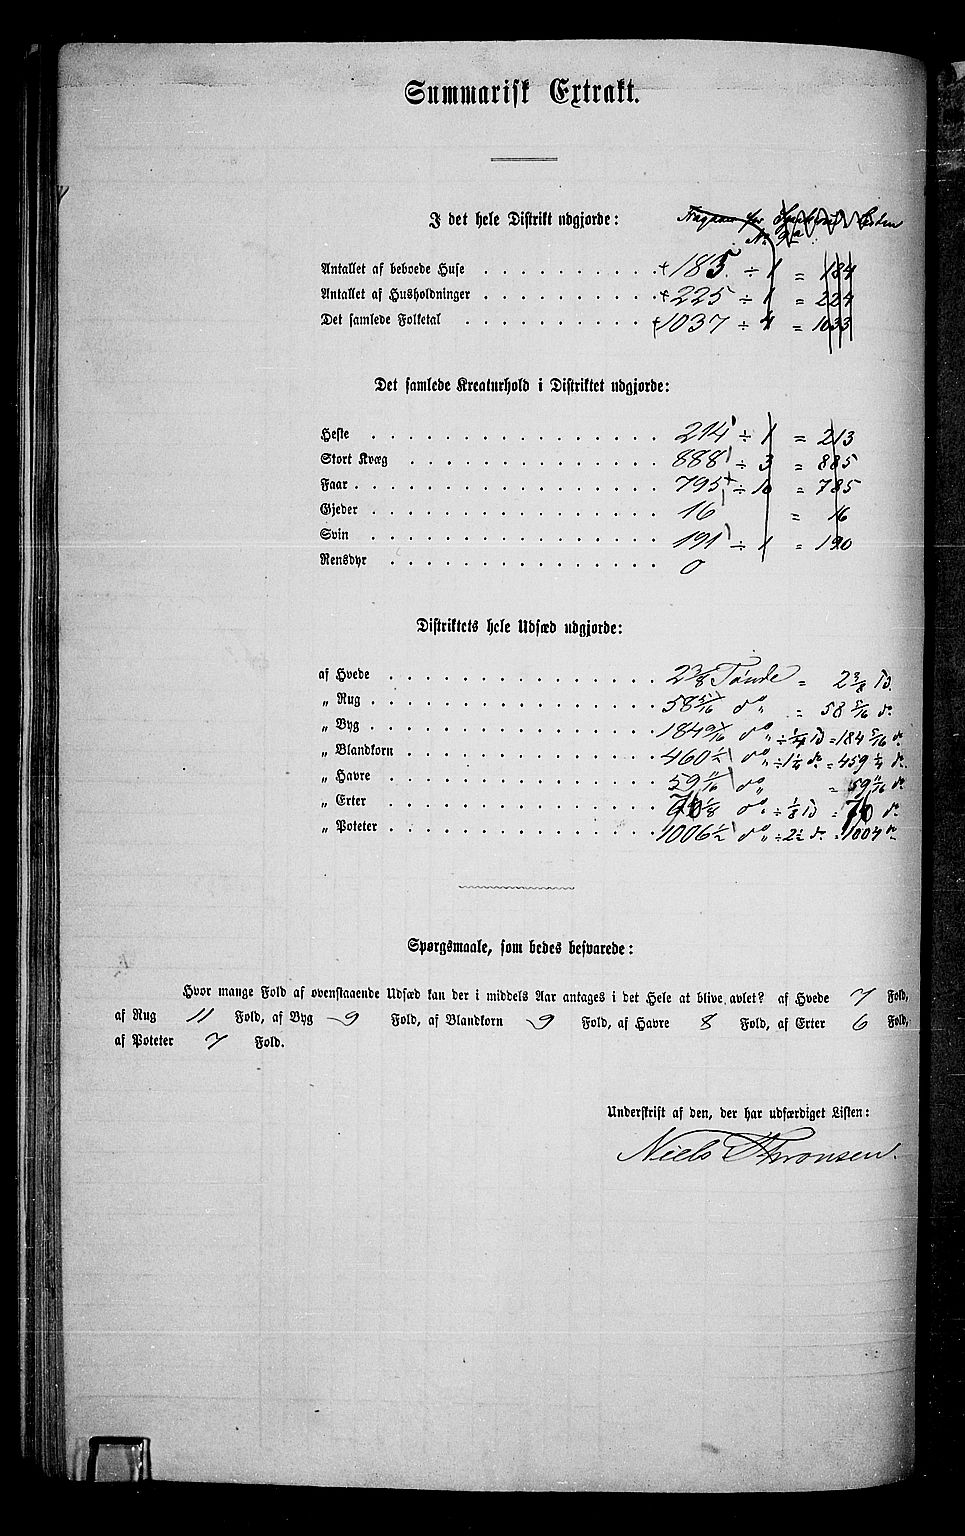 Summarisk Extrakt.
I det hele Distrikt udgjorde:
No 9a
Antallet af beboede Huse 185 ÷ 1 = 184
Antallet af Husholdninger 225 ÷ 1 = 224
Det samlede Folketal 1037 ÷ 4 = 1033
Det samlede Kreaturhold i Distriktet udgjorde:
Heste 214 ÷ 1 = 213
Stort Kvæg 888 ÷ 3 = 885
Faar 795 ÷ 10 = 785
Gjeder 16 = 16
Svin 191 ÷ 1 = 190
Rensdyr 0
Distriktets hele Udsæd udgjorde:
af Hvede 2 3/8 Tønde = 2 3/8 Td.
„ Rug 58 5/16 do „ = 58 5/16 do
„ Byg 184 9/16 do „ ÷ 1/4 Td = 184 5/16 do
„ Blandkorn 460 1/2 do „ ÷ 1 1/4 do = 459 1/4 do
„ Havre 59 11/16 do „ = 59 11/16 do
„ Erter 1/8 do „ ÷ 1/8 Td = 70 do
„ Poteter 1006 1/2 do „ ÷ 2 1/2 do = 1004 do
Spørgsmaale, som bedes besvarede:
Hvor mange Fold af ovenstaaende Udsæd kan der i middels Aar antages i det Hele at blive avlet? af Hvede 7 Fold,
af Rug 11 Fold, af Byg 9 Fold, af Blandkorn 9 Fold, af Havre 8 Fold, af Erter 6 Fold,
af Poteter 7 Fold.
Underskrift af den, der har udfærdiget Listen:
Niels Thronsen.